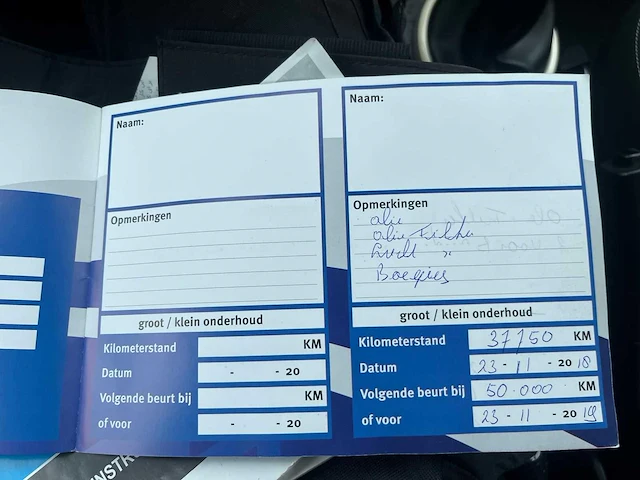 Naam:
Opmerkingen
groot / klein onderhoud
Kilometerstand KM
Datum - - 20
Volgende beurt bij KM
of voor - - 20
Naam:
Opmerkingen
olie
olie Filter
Lucht "
Boegies
groot / klein onderhoud
Kilometerstand 37750 KM
Datum 23 - 11 - 20 18
Volgende beurt bij 50.000 KM
of voor 23 - 11 - 20 19
INSTR